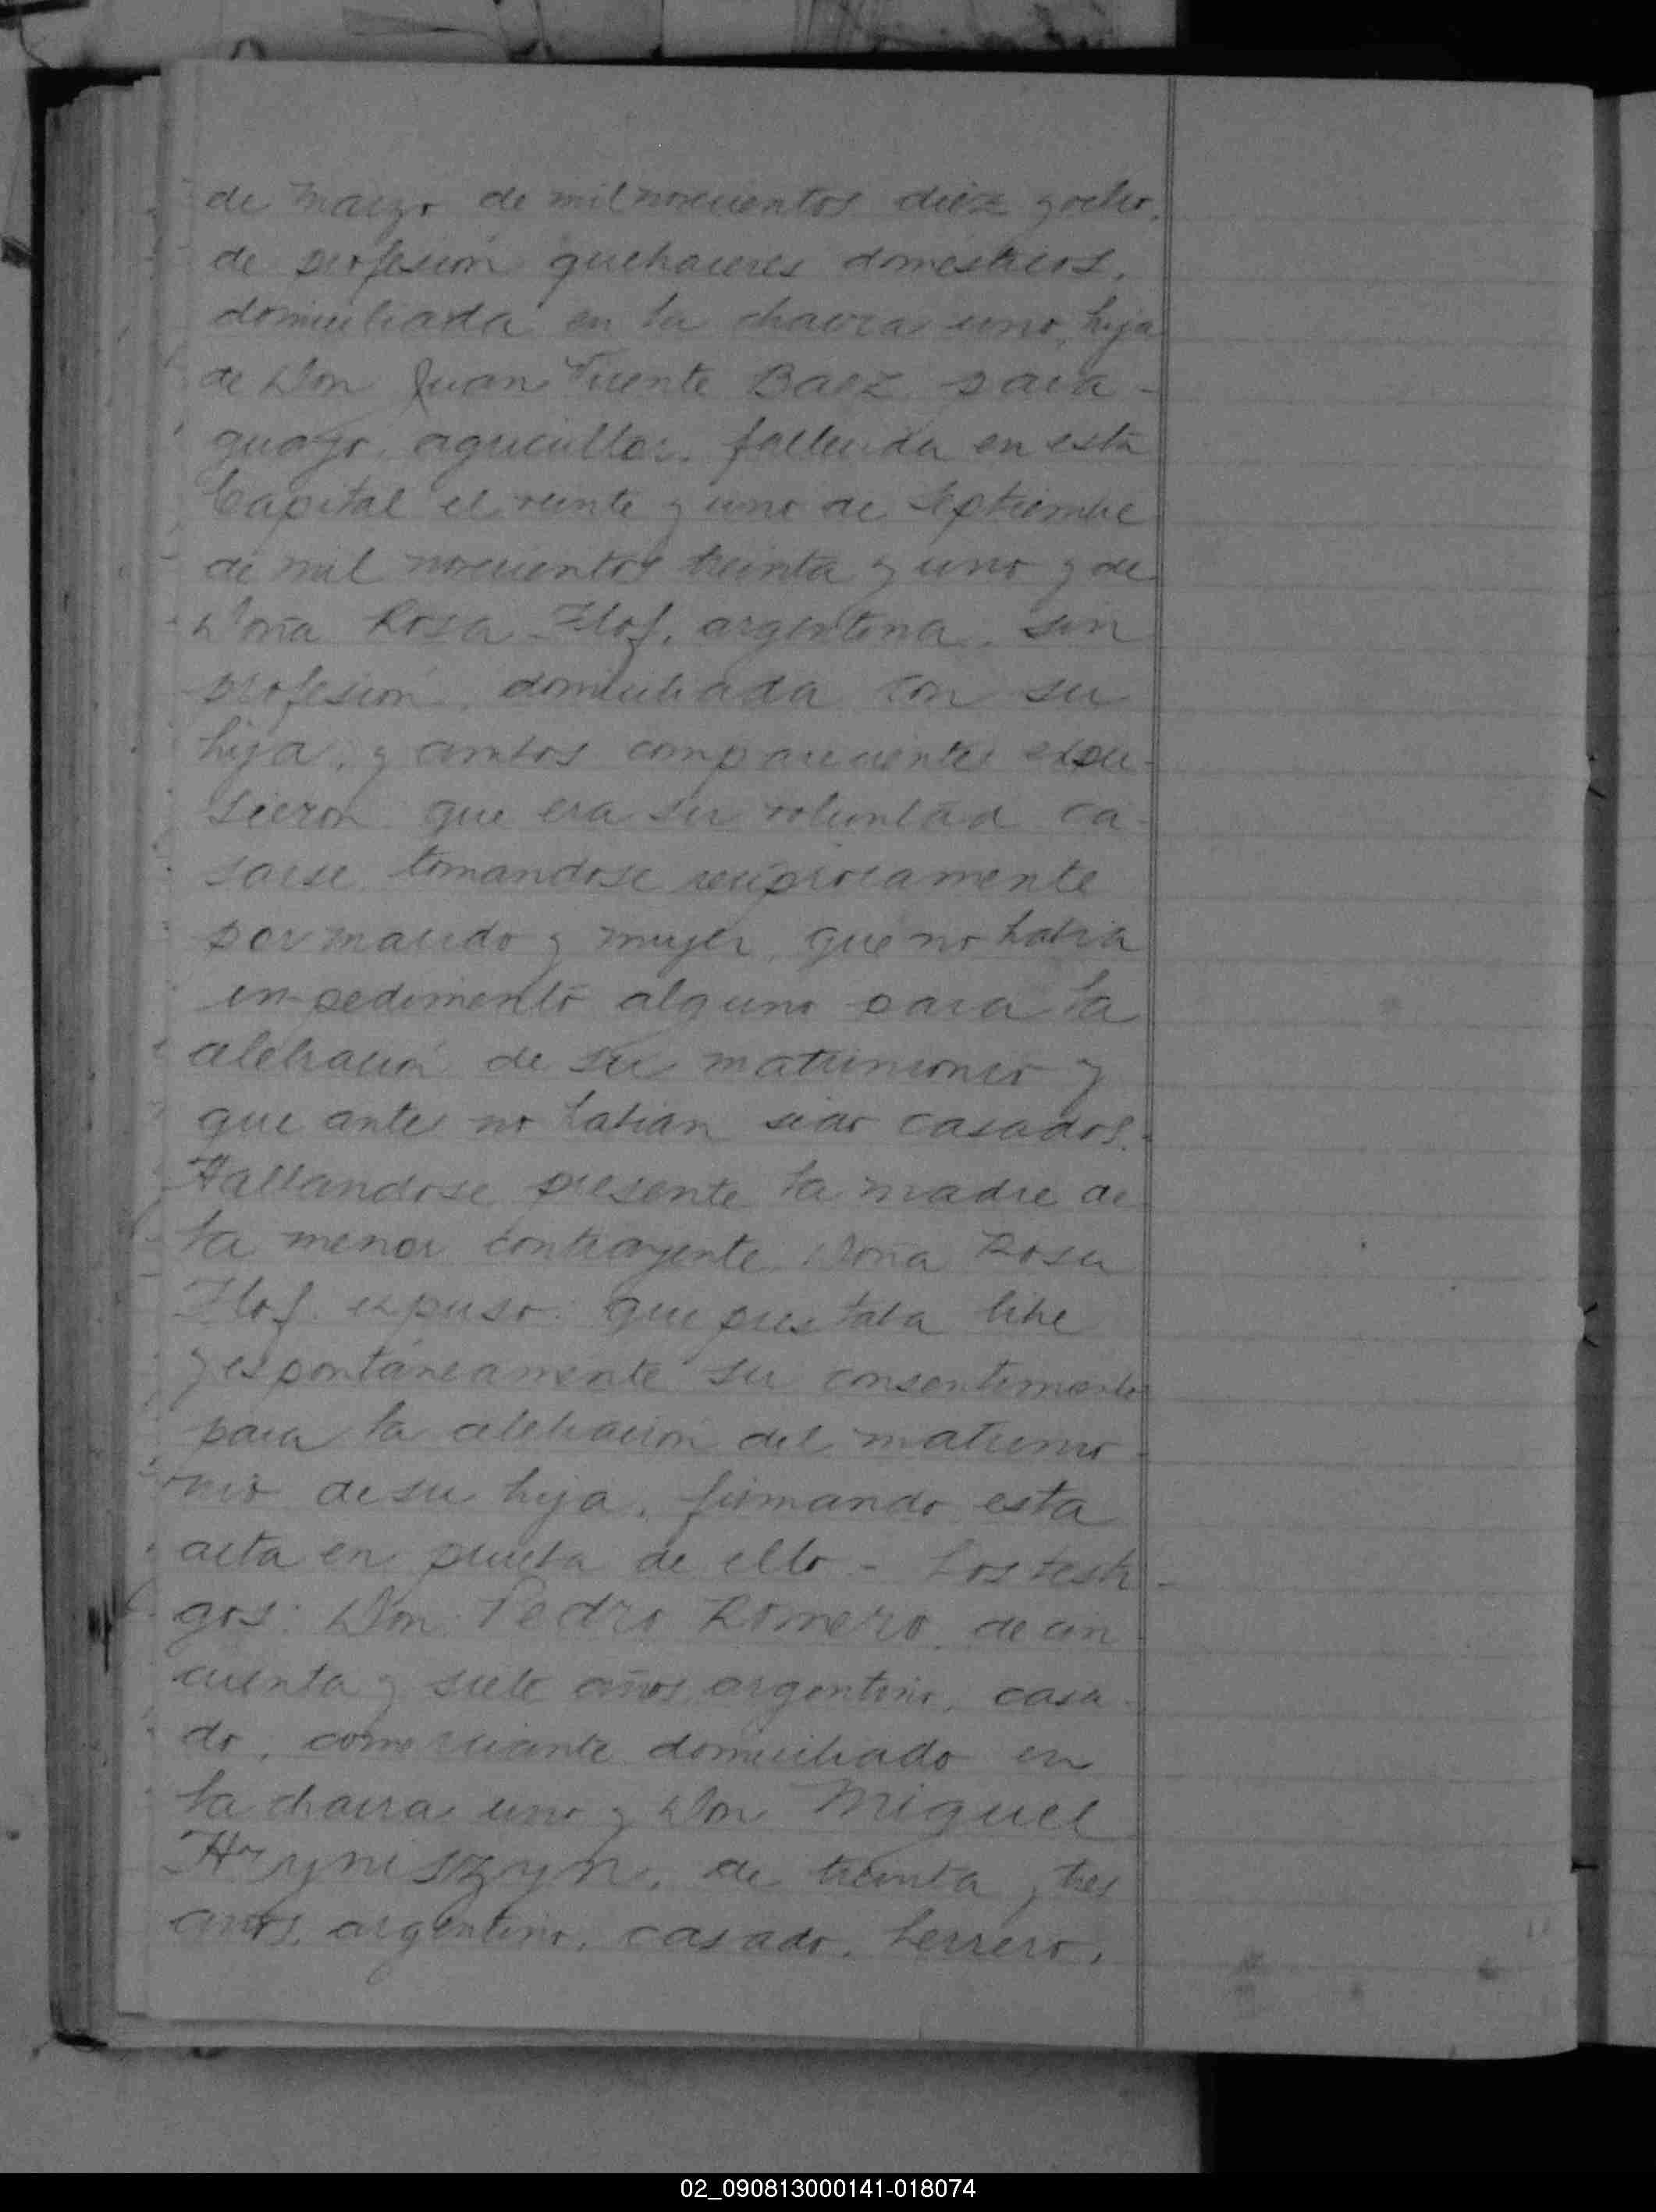 de marzo de mil novecientos diez y ocho,
de profesión quehaceres domésticos,
domiciliada en la chacra uno, hija
de Don Juan Vicente Baez para-
guayo, agricultor, fallecida en esta
Capital el veinte y uno de Septiembre
de mil novecientos treinta y uno y de
Doña Rosa Flof, argentina, sin
profesión, domiciliada con su
hija, y ambos comparecientes expu-
sieron que era su voluntad ca-
sarse tomandose reciprocamente
por marido y mujer, que no habia
impedimento alguno para la
celebración de su matrimonio y
que antes no habian sido casados.-
Hallandose presente la madre de
la menor contrayente Doña Rosa
Flof expuso: que prestaba libre
y espontáneamente su consentimiento
para la celebración del matrimo-
nio de su hija, firmando esta
acta en prueba de ello - Los testi-
gos: Don Pedro Romero, de cin
cuenta y siete años, argentino, casa-
do, comerciante domiciliado en
la chacra uno y Don Miguel
Hryniszyn, de treinta y tres
años, argentino, casado, herrero,
02_090813000141-018074